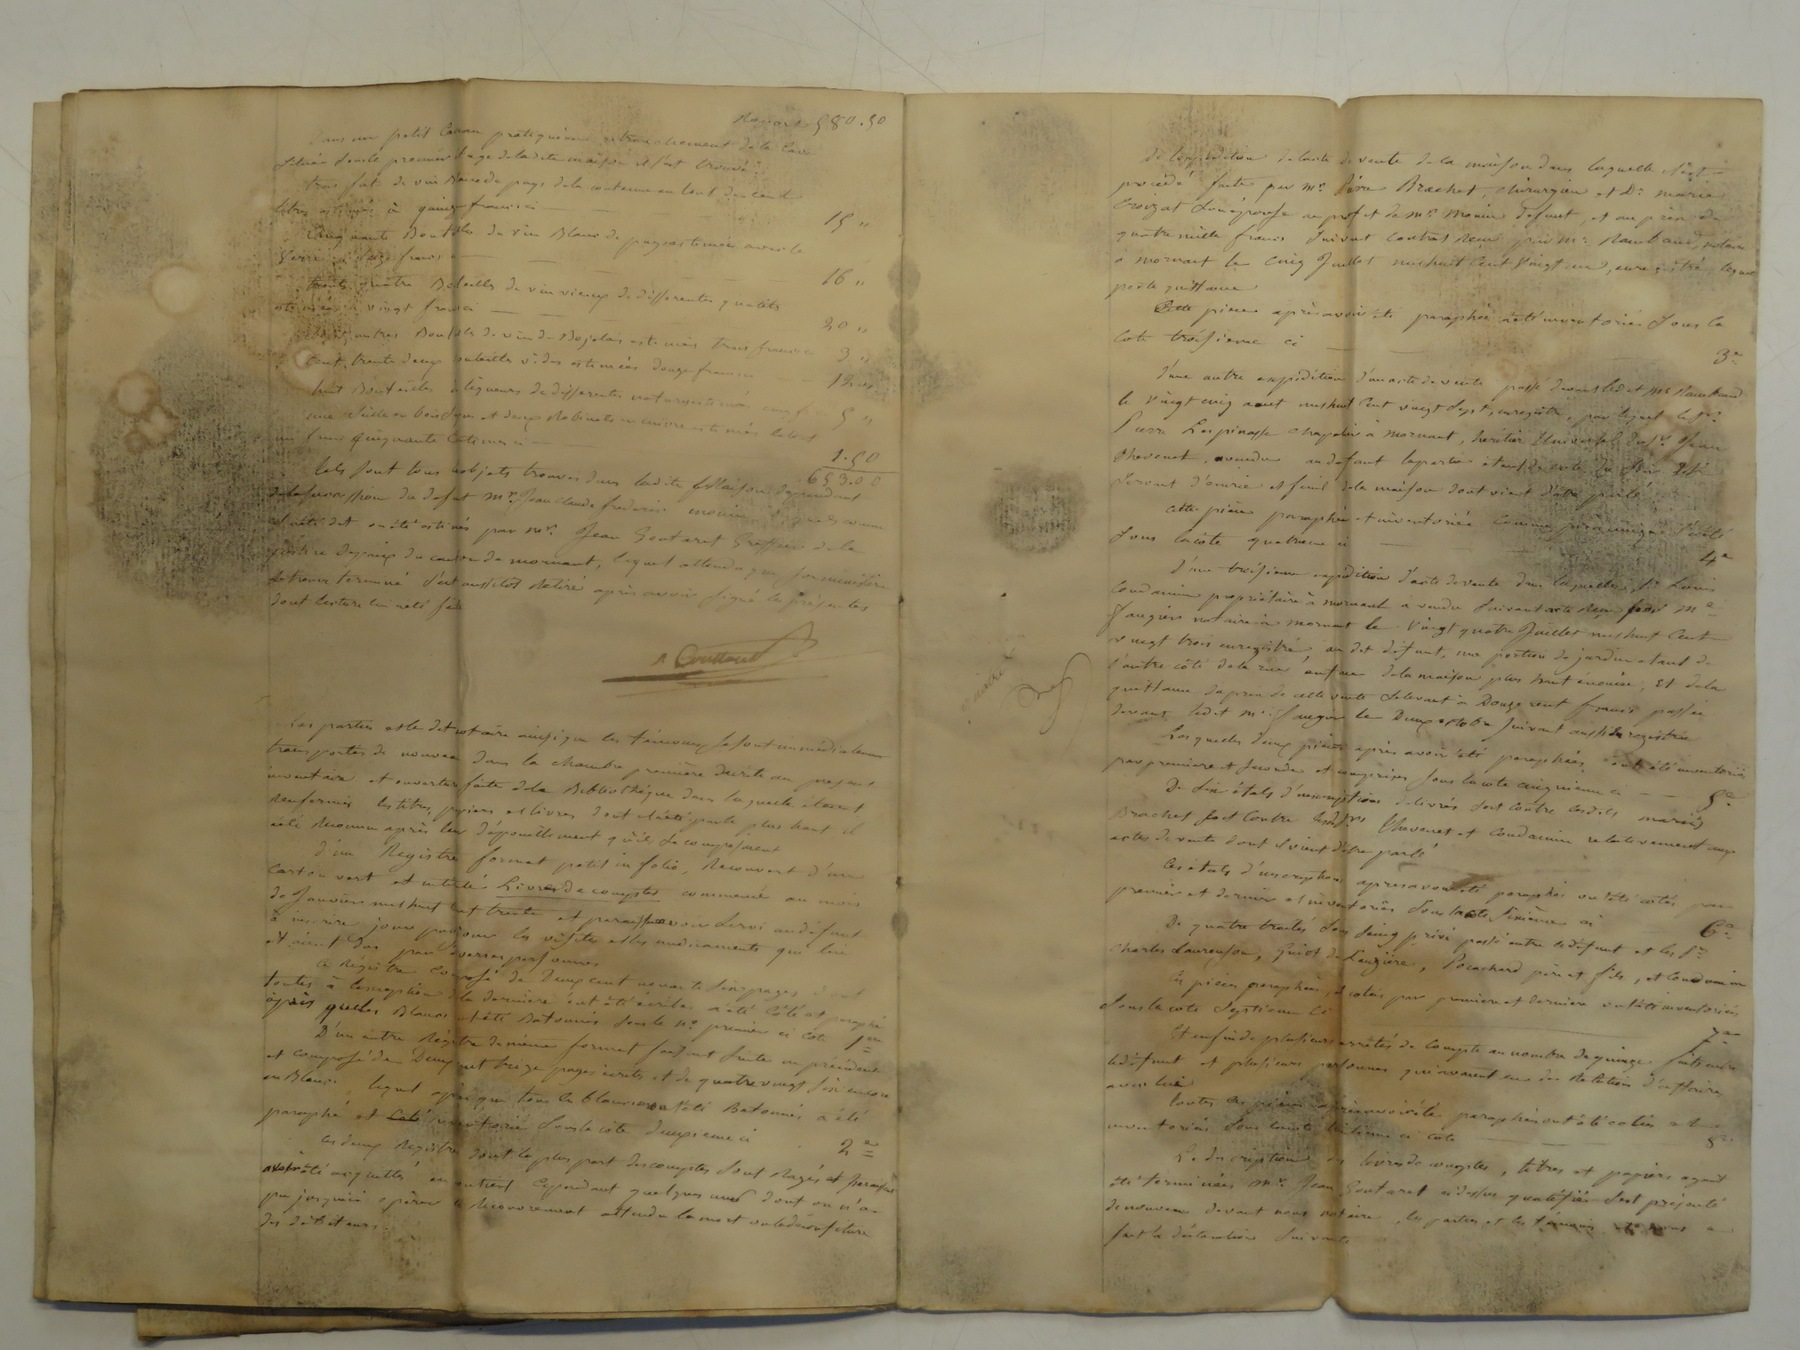 Report 580.50
Dans un petit Caveau pratiqué en retranchement de la Cave
située sous le premier étage de ladite maison il s'est trouvé:
trois fut de vin rouge de pays de la contenue en tout de cent
litres estimés à quinze francs ci 15 "
Cinquante Bouteilles de vin Blanc de pays estimées avec le
verre à seize francs ci 16 "
trente quatre Bouteilles de vin vieux de différentes qualités
estimées à vingt francs 20 "
Bouteilles de vin de Bojolais estimées trois francs ci 3 "
cent trente deux bouteilles vides estimées douze francs 12 "
huit Bouteilles liqueurs de différentes natures estimées cinq f. 5 "
une Seille en bois et deux Robinets en cuivre estimés le tout
un franc cinquante Centimes ci 1.50
653.00
Tels sont tous objets trouvés dans ladite Maison dépendant
de la succession du défunt Mr. Jean Claude frédéric Monin
et ont été estimés par Mr. Jean Goutaret Greffier de la
justice de paix du canton de mornant, lequel attendu que son ministère
se trouve terminé s'est aussitôt retiré après avoir signé les présentes
dont lecture lui a été faite
Goutaret
Les parties et le dit notaire ainsi que les témoins se sont immédiatement
transportés de nouveau dans la chambre première décrite au présent
inventaire et ouverture faite de la Bibliothèque dans laquelle étaient
renfermés les titres, papiers et livres dont il a été parlé plus haut il
a été Reconnu après leur dépouillement qu'ils se composaient
D'un Registre format petit in folio, Recouvert d'un
carton vert et intitulé Livre de comptes commencé au mois
de Janvier mil huit cent trente et paraissant avoir servi au défunt
à inscrire jour par jour les visites et les médicaments qui lui
étaient dus par diverses personnes
Ce Registre composé de Deux cent pages dont
toutes à l'exception de la dernière ont été écrites a été Côté et paraphé
après que les Blancs ont été Batonnés sous le no. premier ci cote 1re
D'un autre Registre de même format faisant suite au précédent
et composé de Deux cent treize pages écrites et de quatre vingt six encore
en Blanc. lequel après que tous les blancs ont été Batonnés a été
paraphé et inventorié sous la côte deuxième ci 2e
Ces deux Registres dont la plus part des comptes sont Rayés et paraissent
avoir été acquittés en contient Cependant quelques uns dont on n'a
pu jusqu'ici opérer le Recouvrement attendu la mort ou la déconfiture
des débiteurs.
De l'expédition de l'acte de vente de la maison dans laquelle il est
procédé faite par Mr. Pierre Brachet, chirurgien et De. marie
Croizat son épouse au profit de Mr. Monin défunt, et au prix de
quatre mille francs suivant contrat Reçu par Me. Rambaud, notaire
à mornant le cinq Juillet mil huit Cent Vingt un, enregistré, lequel
porte quittance
Cette pièce après avoir été paraphée a été inventoriée sous la
cote troisième ci 3e
D'une autre expédition d'un acte de vente passé devant ledit Me Rambaud
le Vingt cinq aout mil huit Cent vingt sept, enregistré, par lequel le Sr.
Pierre Lespinasse Chapelier à Mornant, héritier Universel du Sr. Jean
Chovenet, a vendu au défunt la partie
servant d'écurie et fenil de la maison dont vient d'être parlé
Cette pièce paraphée et inventoriée comme
sous la cote quatrième ci 4e
D'une troisième expédition d'acte de vente dans laquelle, Sr. Louis
Condamin propriétaire à mornant a vendu suivant acte Reçu par Me.
Jaugeon notaire à Mornant le Vingt quatre Juillet mil huit Cent
vingt trois enregistré, au dit défunt, une portion de jardin étant de
l'autre côté de la rue en face de la maison plus haut énoncée, Et de la
quittance du prix de cette vente s'élevant à Douze cent francs passée
devant ledit Me. Jaugeon le Deux octobre suivant aussi enregistrée
Lesquelles deux pièces après avoir été paraphées ont été inventoriées
par première et seconde et comprises sous la cote cinquième ci 5e
De six états d'inscriptions délivrés soit Contre lesdits mariés
Brachet soit Contre lesd. Srs. Chovenet et Condamin relativement aux
actes de vente dont il vient d'être parlé
Ces états d'inscriptions après avoir été paraphés ont été côtés par
premier et dernier et inventoriés sous la cote sixième ci 6e
De quatre traités sous seing privé passés entre le défunt et les Srs.
Charles Laurenson, Guiot de Lauzière, Pocachard père et fils, et Condamin
Ces pièces paraphées, et cotées par première et dernière ont été inventoriées
sous la cote septième Ci 7e
Et enfin de plusieurs arrêtés de Compte au nombre de quinze faits entre
le défunt et plusieurs personnes qui avaient eu des Relations d'affaires
avec lui
Toutes ces pièces après avoir été paraphées ont été cotées et
inventoriées sous la cote huitième ci cote 8e
La description des livres de comptes, titres et papiers ayant
été terminée Mr. Jean Goutaret ci dessus qualifié s'est présenté
de nouveau devant nous notaire, les parties et les témoins et nous a
fait la déclaration suivante